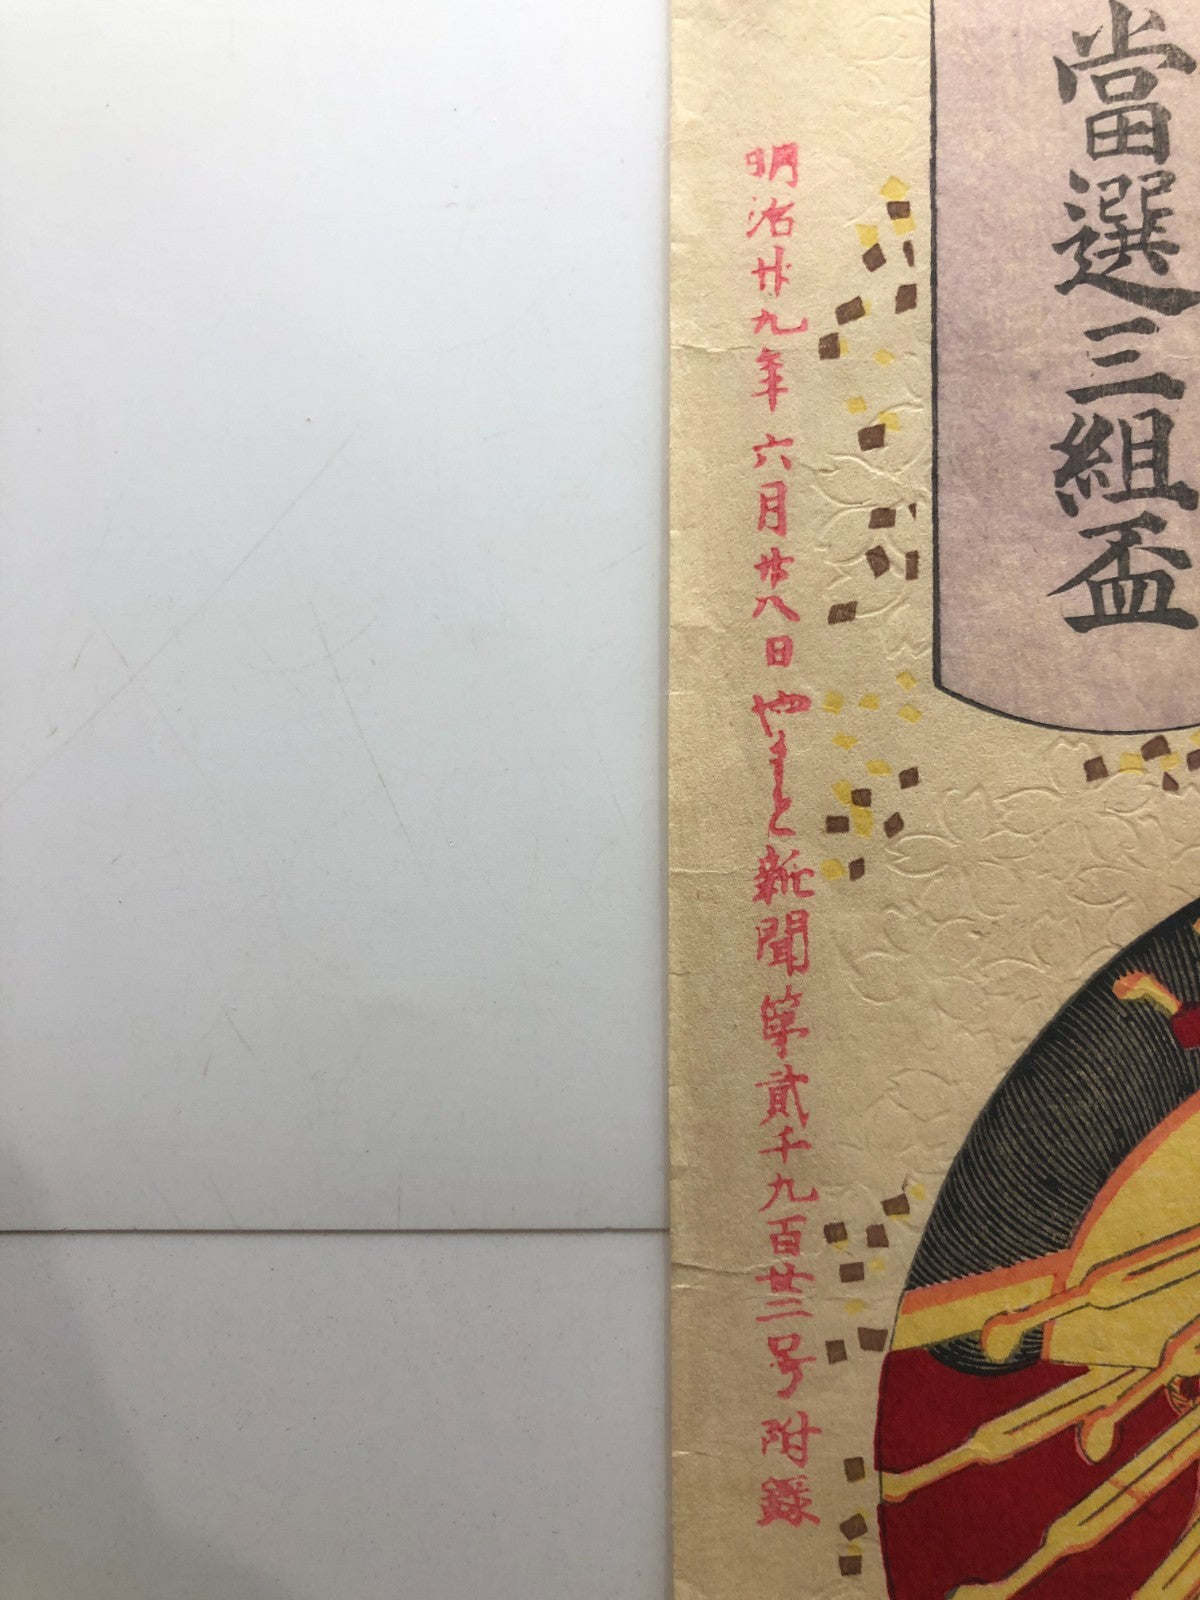 當選三組盃
明治廿九年六月廿八日やまと新聞第貳千九百廿二号附錄